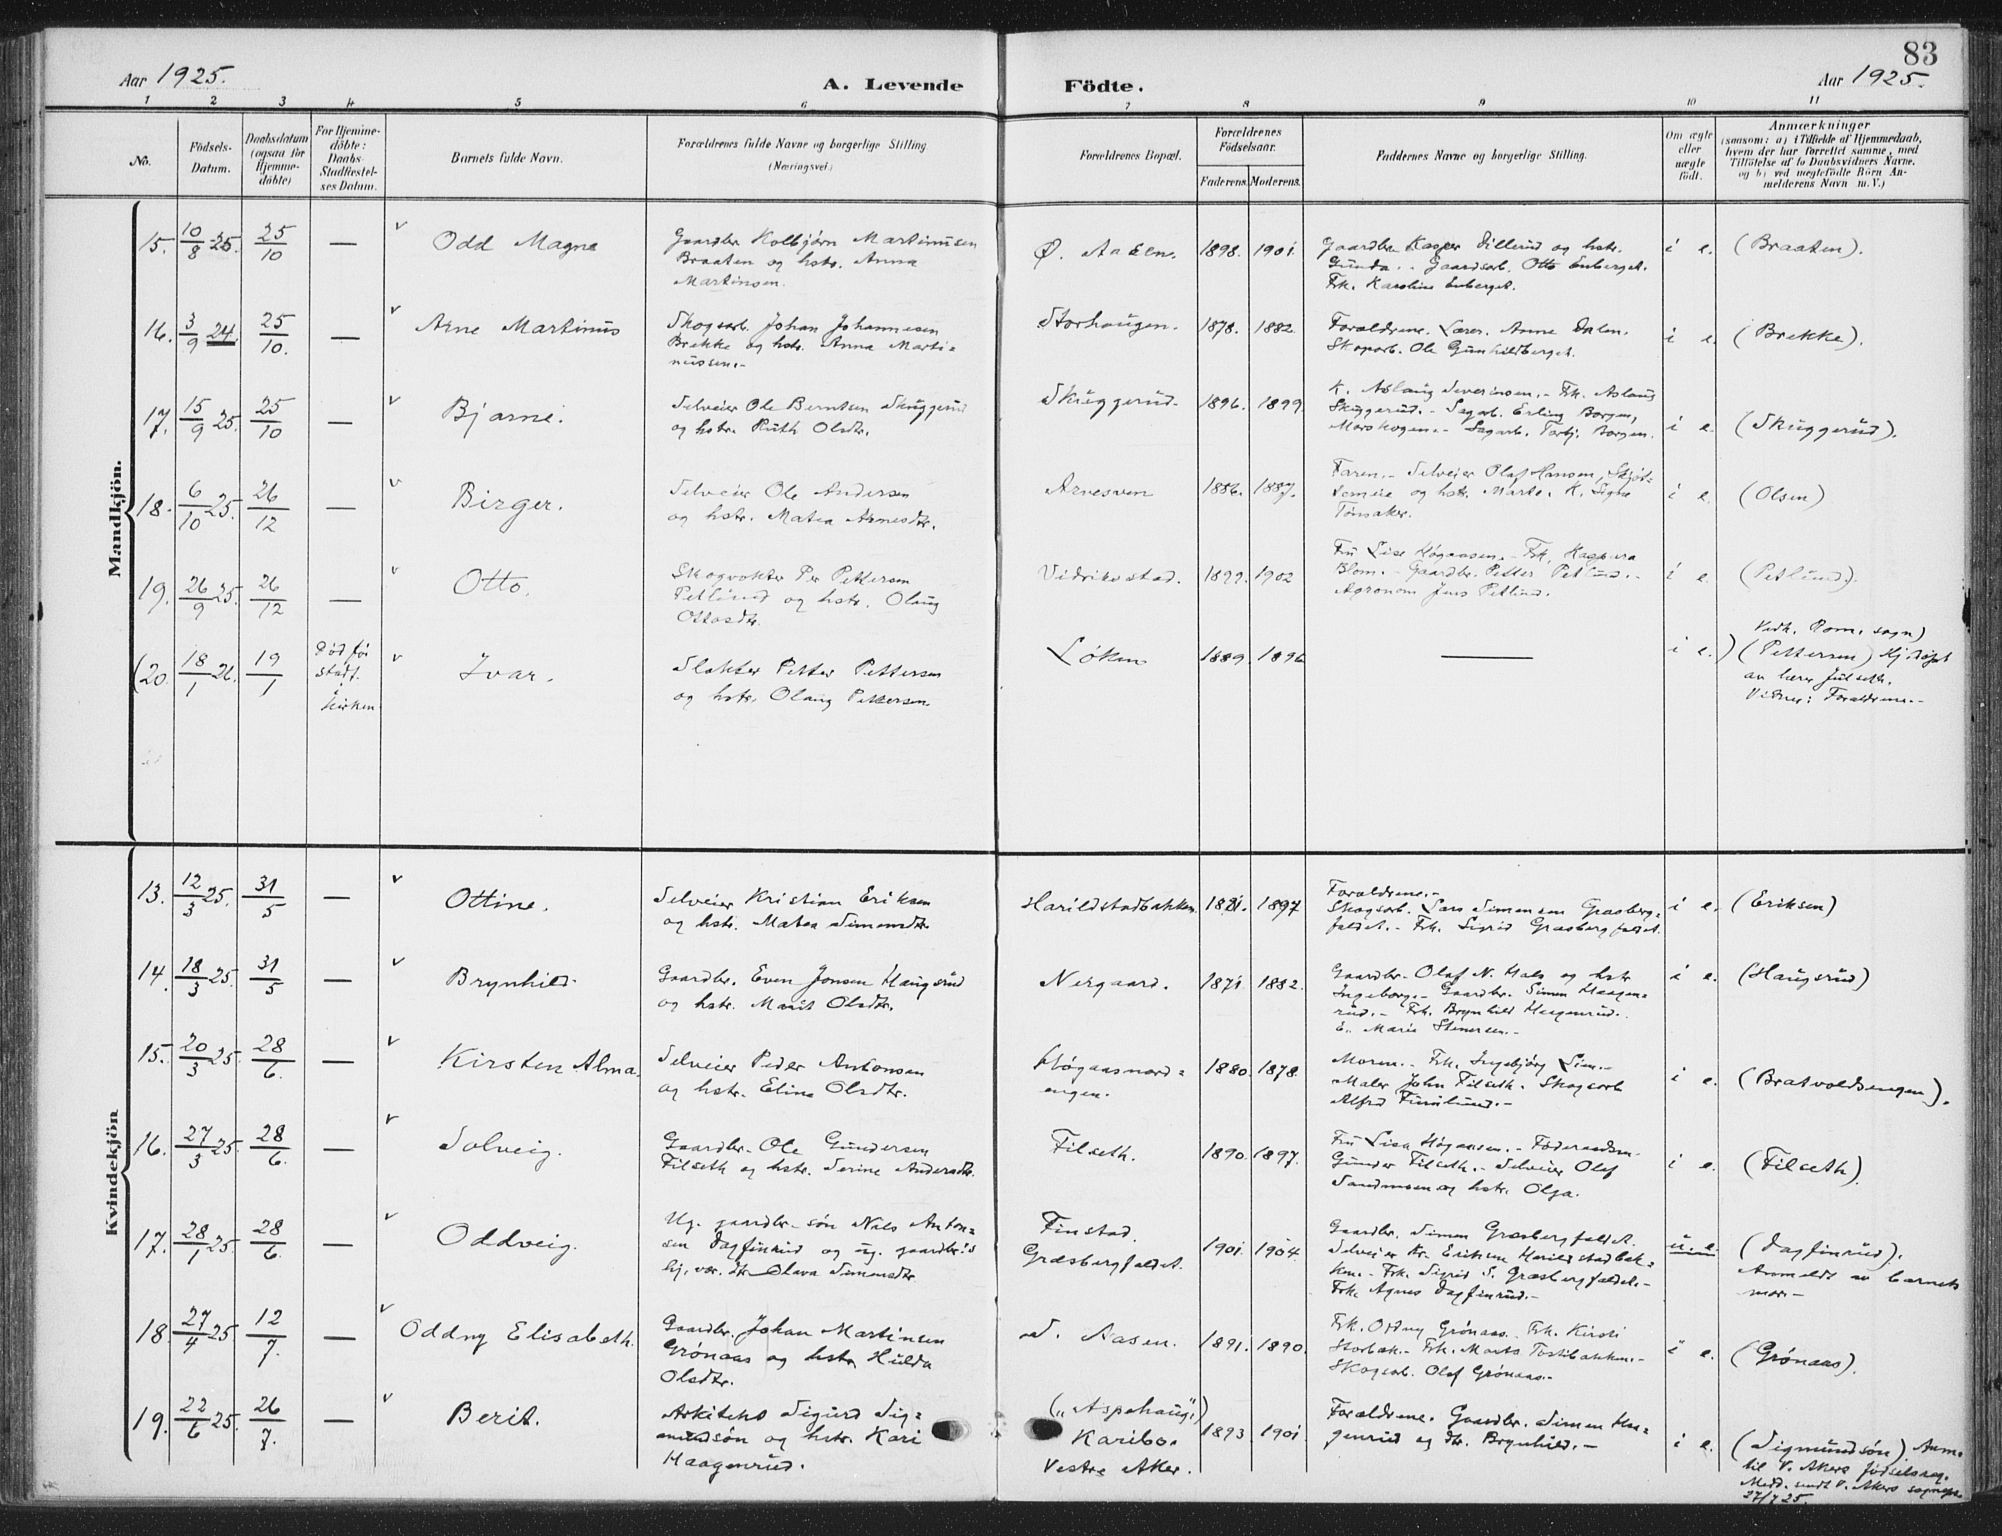 83
Aar 1925.
A. Levende
Födte.
Aar 1925.
1 2 3 4 5 6 7 8 9 10 11
No.
Födsels-
Datum.
Daabsdatum
(ogsaa for
Hjemme-
döbte)
For Hjemme-
döbte:
Daabs-
Stadfæstel-
ses Datum.
Barnets fulde Navn.
Forældrenes fulde Navne og borgerlige Stilling
(Næringsvei.)
Forældrenes Bopæl.
Forældrenes
Födselsaar.
Faderens. Moderens.
Faddernes Navne og borgerlige Stilling.
Om ægte
eller
uægte
födt.
Anmærkninger
(saasom: a) i Tilfælde af Hjemmedaab,
hvem der har forrettet samme, med
Tilföielse af to Daabsvidners Navne,
og b) ved uegtefödte Börn An-
melderens Navn m. V.)
Mandkjön.
15. 10/8 25. 25/10 — Odd Magne
Gaardbr. Kolbjørn Martinusen
Braaten og hstr. Anna
Martinsen.
Ø. Aasen. 1898. 1901.
Gaardbr. Kasper Dillerud og hstr.
Gunda. - Gaardsarb. Otto Enberget.
Frk. Karoline Enberget.
i e. (Braaten).
16. 3/9 24. 25/10. — Arne Martinus
Skogsarb. Johan Johannesen
Brekke og hstr. Anna Marti=
nussen.-
Storhaugen. 1878. 1882.
Forældrene. Lærer. Anne Dalen.
Skogarb. Ole Gunhildberget.
i e. (Brekke).
17. 15/9 25. 25/10 — Bjarne.
Selveier Ole Berntsen Skuggerud
og hstr. Ruth Olsdtr.
Skuggerud. 1896. 1899.
K. Aslaug Severinsen.- Frk. Aslaug
Skuggerud. - Sagarb. Erling Borgen,
Morskogen.- Sagarb. Torbj. Borgen.
i e. (Skuggerud).
18. 6/10 25. 26/12 — Birger.
Selveier Ole Andersen
og hstr. Matea Arnesdtr.
Arnesven 1886. 1887.
Faren.- Selveier Olaf Hansen,
og hstr. Marte. K. Signe
Tønsaker.
i e. (Olsen)
19. 26/9 25. 26/12 — Otto.
Skogvokter Per Pettersen
Petlund og hstr. Olaug
Ottosdtr.
Vidrikstad. 1899. 1902
Fru Lise Høgaasen.- Frk. Kaspara
Blom. - Gaardbr. Petter Petlund.-
Agronom Jens Petlund.
i e. (Petlund).
(20. 18/1 26. 19/1 Død før
stadf.
i
kirken. Ivar.
Slakter Petter Pettersen
og hstr. Olaug Pettersen.
Løken 1889. 1896 —
i e.) Vedk. Rom. sogn)
(Pettersen) Hj.døpt
av lærer Julseth.
Vidner: Forældrene.-
Kvindekjön
13. 12/3 25. 31/5 — Ottine.
Selveier Kristian Eriksen
og hstr. Matea Simensdtr.
Harildstadbakken. 1881. 1897
Forældrene.-
Skogsarb. Lars Simensen Græsberg=
faldet.- Frk. Sigrid Græsbergfaldet.
i e. (Eriksen)
14. 18/3 25. 31/5 — Brynhild.
Gaardbr. Even Jonsen Haugsrud
og hstr. Marit Olsdtr.
Nergaard. 1871. 1882.
Gaardbr. Olaf N. Hals og hstr
Ingeborg.- Gaardbr. Simen Haagen=
rud.- Frk. Brynhild Haagenrud.
E. Marie Stenersen.-
i e. (Haugsrud)
15. 20/3 25. 28/6. — Kirsten Alma.
Selveier Peder Antonsen
og hstr. Eline Olsdtr.
Høgaasnord=
engen. 1880. 1878.
Moren.- Frk. Ingebjørg Lien.-
Maler John Filseth. Skogsarb
Alfred Furulund.-
i e. (Bratvoldsengen).
16. 27/3 25. 28/6. — Solveig.
Gaardbr. Ole Gundersen
Filseth og hstr. Serine Andersdtr.
Filseth. 1890. 1897.
Fru Lisa Høgaasen. - Føderaadsm.
Gunder Filseth.- Selveier Olaf
Sandmoen og hstr. Olga.
i e. (Filseth).
17. 28/1 25. 28/6. — Oddveig.
Ug. gaardbr.-søn Nils Anton=
sen Dagfinrud og ug. gaardbr.'s
hj. vær. dtr. Olava Simensdtr
Finstad.
Græsbergfaldet. 1901. 1904.
Gaardbr. Simen Græsbergfaldet.
Selveier Kr. Eriksen Harildstadbak=
ken.- Frk. Sigrid S. Græsbergfaldet.-
Frk. Agnes Dagfinrud.-
u. e. (Dagfinrud).
Anmeldt av barnets
mor.-
18 27/4 25 12/7. — Oddny Elisabeth.
Gaardbr. Johan Martinsen
Grønaas og hstr. Hulda
Olsdtr.
S. Aasen. 1891. 1890.
Frk. Oddny Grønaas. Frk. Kirsti
Storbak.- Frk. Marta Tostibakken.-
Skogsarb. Olaf Grønaas.-
i e. (Grønaas).
19. 22/6 25. 26/7. — Berit.
Arkitekt Sigurd Sig=
mundsøn og hstr. Kari
Haagenrud.
("Aspehaug")
Karibo.
Vestre Aker. 1893. 1901.
Forældrene. Gaardbr. Simen Haa=
genrud og dtr. Brynhild.-
i e. (Sigmundsøn) Anm.
til V. Akers fødselsreg.
Medd. sendt V. Akers sognepr.
27/7 25.